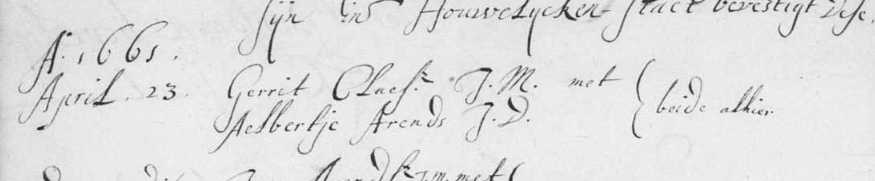 sijn in Houwelycken staet bevestigt dese.
A⁰. 1661.
April. 23. Gerrit Claesz J.M. met
Aelbertje Arends J.D. beide alhier